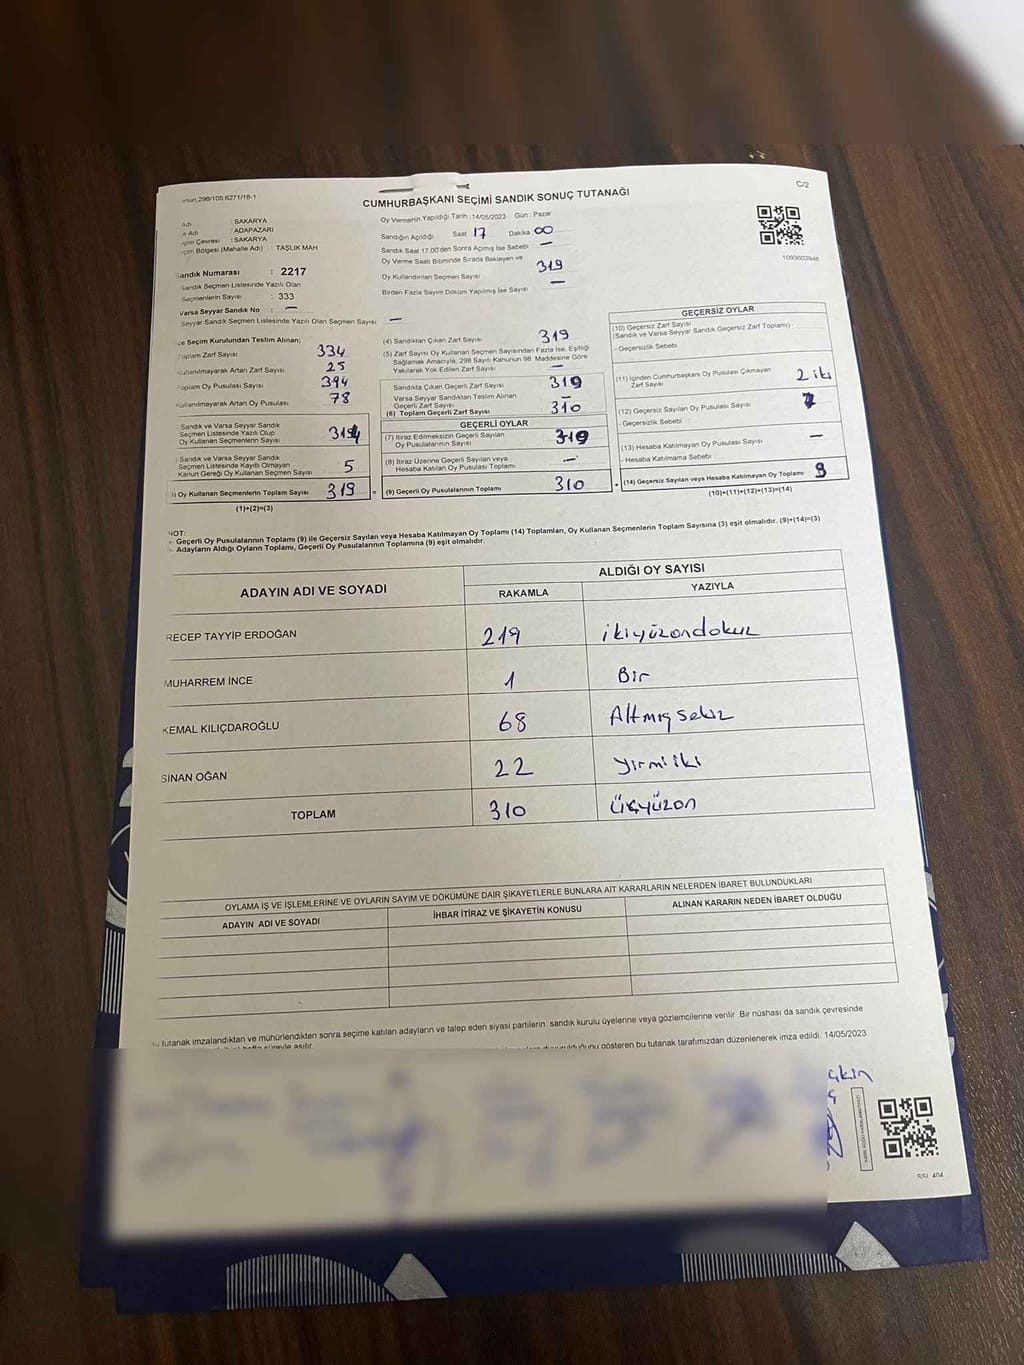 298/106.6271/18-1
C/2
CUMHURBAŞKANI SEÇİMİ SANDIK SONUÇ TUTANAĞI
Adı : SAKARYA
Adı : ADAPAZARI
Çevresi : SAKARYA
Bölgesi (Mahalle Adı) : TAŞLIK MAH
Sandık Numarası : 2217
Sandık Seçmen Listesinde Yazılı Olan
Seçmenlerin Sayısı : 333
Varsa Seyyar Sandık No : —
Seyyar Sandık Seçmen Listesinde Yazılı Olan Seçmen Sayısı —
Oy Vermenin Yapıldığı Tarih :14/05/2023 Gün : Pazar
Sandığın Açıldığı Saat 17 Dakika 00
Sandık Saat 17.00'den Sonra Açmış İse Sebebi —
Oy Verme Saati Bitiminde Sırada Bekleyen ve
Oy Kullandırılan Seçmen Sayısı 319
Birden Fazla Sayım Döküm Yapılmış İse Sayısı —
1093603948
Seçim Kurulundan Teslim Alınan;
Toplam Zarf Sayısı 334
Kullanılmayarak Artan Zarf Sayısı 25
Toplam Oy Pusulası Sayısı 394
Kullanılmayarak Artan Oy Pusulası 78
Sandık ve Varsa Seyyar Sandık
Seçmen Listesinde Yazılı Olup
Oy Kullanan Seçmenlerin Sayısı
Sandık ve Varsa Seyyar Sandık
Seçmen Listesinde Kayıtlı Olmayan
Kanun Gereği Oy Kullanan Seçmen Sayısı 5
Oy Kullanan Seçmenlerin Toplam Sayısı 319 =
(1)+(2)=(3)
(4) Sandıktan Çıkan Zarf Sayısı 319
(5) Zarf Sayısı Oy Kullanan Seçmen Sayısından Fazla İse, Eşitliği
Sağlamak Amacıyla; 298 Sayılı Kanunun 98. Maddesine Göre
Yakılarak Yok Edilen Zarf Sayısı —
Sandıkta Çıkan Geçerli Zarf Sayısı 319
Varsa Seyyar Sandıktan Teslim Alınan
Geçerli Zarf Sayısı —
(6) Toplam Geçerli Zarf Sayısı 310
GEÇERLİ OYLAR
(7) İtiraz Edilmeksizin Geçerli Sayılan
Oy Pusulalarının Sayısı 319
(8) İtiraz Üzerine Geçerli Sayılan veya
Hesaba Katılan Oy Pusulası Toplamı —
(9) Geçerli Oy Pusulalarının Toplamı 310 +
GEÇERSİZ OYLAR
(10) Geçersiz Zarf Sayısı
(Sandık ve Varsa Seyyar Sandık Geçersiz Zarf Toplamı)
- Geçersizlik Sebebi
(11) İçinden Cumhurbaşkanı Oy Pusulası Çıkmayan
Zarf Sayısı 2 iki
(12) Geçersiz Sayılan Oy Pusulası Sayısı 7
- Geçersizlik Sebebi
(13) Hesaba Katılmayan Oy Pusulası Sayısı —
- Hesaba Katılmama Sebebi
(14) Geçersiz Sayılan veya Hesaba Katılmayan Oy Toplamı 9
(10)+(11)+(12)+(13)=(14)
NOT:
- Geçerli Oy Pusulalarının Toplamı (9) ile Geçersiz Sayılan veya Hesaba Katılmayan Oy Toplamı (14) Toplamları, Oy Kullanan Seçmenlerin Toplam Sayısına (3) eşit olmalıdır. (9)+(14)=(3)
- Adayların Aldığı Oyların Toplamı, Geçerli Oy Pusulalarının Toplamına (9) eşit olmalıdır.
ADAYIN ADI VE SOYADI ALDIĞI OY SAYISI
RAKAMLA YAZIYLA
RECEP TAYYİP ERDOĞAN 219 ikiyüzondokuz
MUHARREM İNCE 1 Bir
KEMAL KILIÇDAROĞLU 68 Altmışsekiz
SİNAN OĞAN 22 yirmiiki
TOPLAM 310 üçyüzon
OYLAMA İŞ VE İŞLEMLERİNE VE OYLARIN SAYIM VE DÖKÜMÜNE DAİR ŞİKAYETLERLE BUNLARA AİT KARARLARIN NELERDEN İBARET BULUNDUKLARI
ADAYIN ADI VE SOYADI İHBAR İTİRAZ VE ŞİKAYETİN KONUSU ALINAN KARARIN NEDEN İBARET OLDUĞU
tutanak imzalandıktan ve mühürlendikten sonra seçime katılan adayların ve talep eden siyasi partilerin sandık kurulu üyelerine veya gözlemcilerine verilir. Bir nüshası da sandık çevresinde
hafta süreyle asılır. gösteren bu tutanak tarafımızdan düzenlenerek imza edildi. 14/05/2023